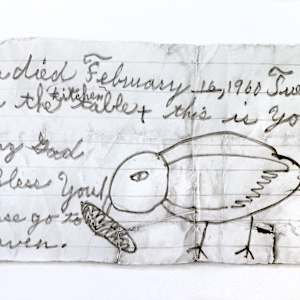 died February 16, 1960
the kitchen table + this is Yo
God
bless You!
go to